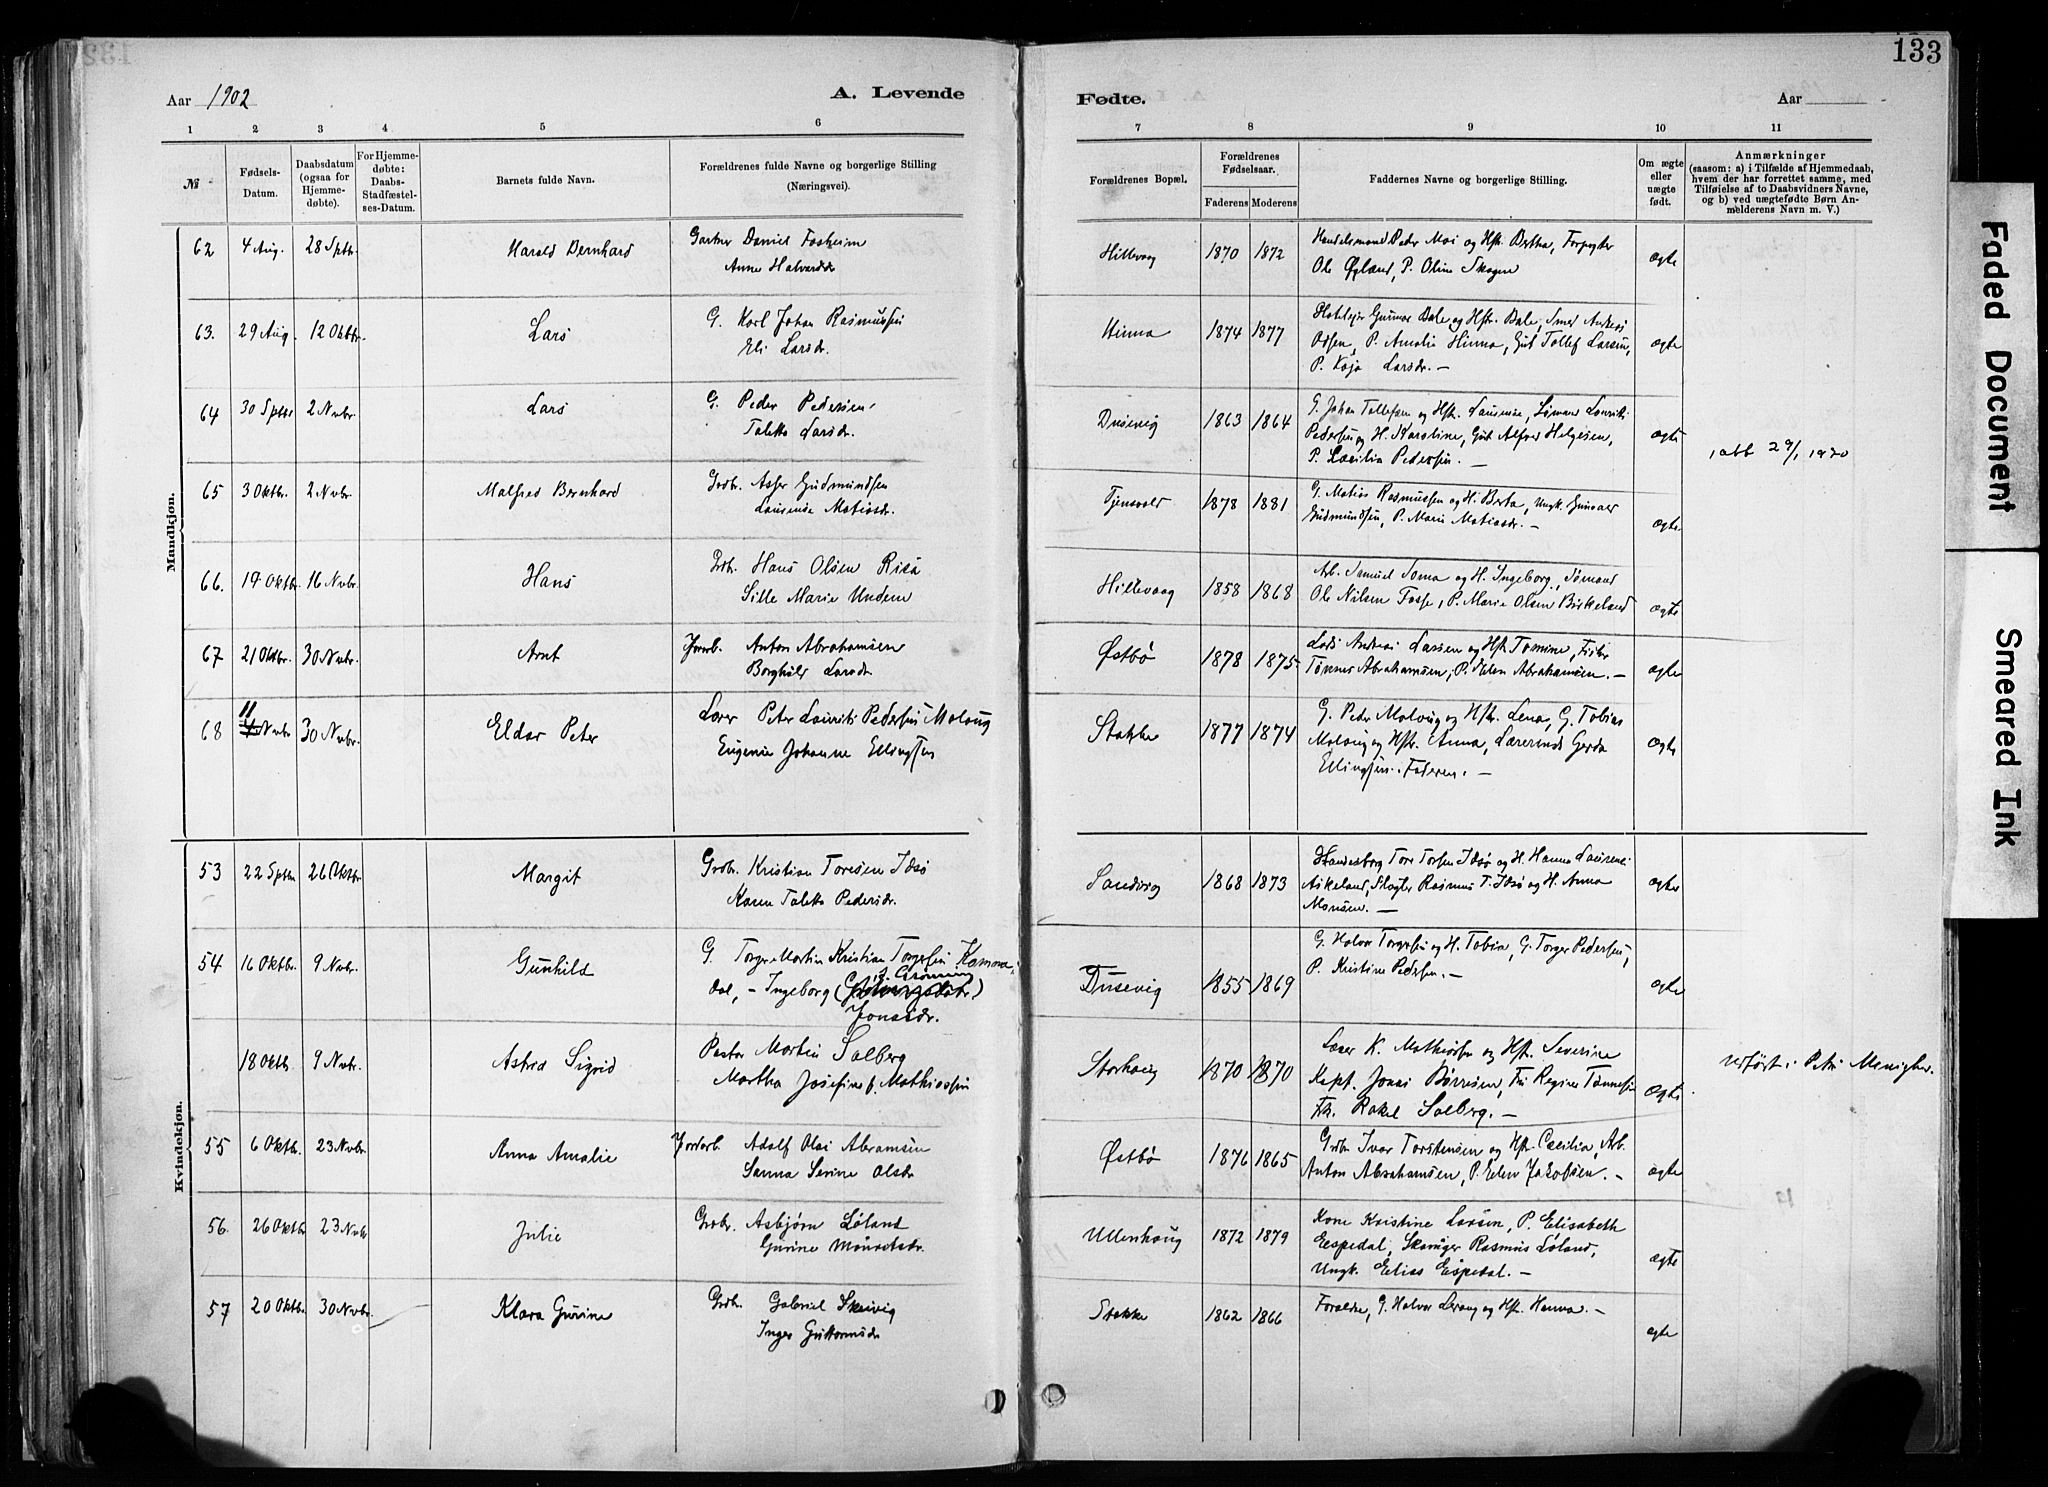 133
Aar 1902
A. Levende
Fødte.
Aar
1 2 3 4 5 6 7 8 9 10 11
№
Fødsels-
Datum.
Daabsdatum
(ogsaa for
Hjemme-
døbte).
For Hjemme-
døbte:
Daabs-
Stadfæstel-
ses-Datum.
Barnets fulde Navn.
Forældrenes fulde Navne og borgerlige Stilling
(Næringsvei).
Forældrenes Bopæl.
Forældrenes
Fødselsaar.
Faderens Moderens
Faddernes Navne og borgerlige Stilling.
Om ægte
eller
uægte
født.
Anmærkninger
(saasom: a) i Tilfælde af Hjemmedaab,
hvem der har forrettet samme, med
Tilføielse af to Daabsvidners Navne,
og b) ved uægtefødte Børn An-
melderens Navn m. V.)
Mandkjøn.
62 4 Aug. 28 Sptbr. Harald Bernhard Gartner Daniel Fosheim
Anne Halvorsdr
Hillevaag 1870 1872 Handelsmand Peder Moi og Hst. Bertha, Forpagter
Ole Øgland, P. Oline Skogen
ægte
63. 29 Aug. 12 Oktbr. Lars G. Karl Johan Rasmussen
Eli Larsdr.
Hinna 1874 1877 Gunnar Bale og Hst. Bale, Smed Andreas
Olsen, P. Amalie Hinna, Gut Tollef Larsen,
P. Kaja Larsdr. —
ægte
64 30 Sptbr 2 Nvbr. Lars G. Peder Pedersen
Taletta Larsdr.
Dusevig 1863 1864 G. Johan Tollefsen og Hst. Laurense, Sømand Laurits
Pedersen og H. Karoline, Gut Alfred Helgesen,
P. Cecilia Pedersen. —
ægte
65 3 Oktbr. 2 Nvbr. Malfred Bernhard Grdb. Asser Gudmundsen
Laurense Matiasdr.
Tjensvold 1878 1881 G. Matias Rasmussen og H. Berta, Ungk. Gunvald
Gudmundsen, P. Marie Matiasdr. —
ægte
66. 19 Oktbr. 16 Nvbr. Hans Grdb. Hans Olsen Risa
Sille Marie Undem
Hillevaag 1858 1868 Arb. Samuel Soma og H. Ingeborg, Sømand
Ole Nilsen Fosse, P. Marie Olsen Birkeland
ægte
67 21 Oktbr. 30 Nvbr. Arnt Jernb. Anton Abrahamsen
Borghild Larsdr.
Østbø 1878 1875 Lars Andreas Larsen og Hst. Tomine, Fisker
Tønnes Abrahamsen, P. Helen Abrahamsen. —
ægte
68 11 Nvbr 30 Nvbr. Eldar Peter Lærer Peter Laurits Pedersen Malvig
Eugenie Johanne Ellingsen
Stokke 1877 1874 G. Peder Malvig og Hst. Lena, G. Tobias
Malvig og Hst. Anna, Lærerinde Gerda
Ellingsen. Faderen. —
ægte
Kvindekjøn.
53 22 Sptbr 26 Oktbr Margit Grdb. Kristian Toresen Idsø
Karen Taletta Pedersdr.
Sandvig 1868 1873 Tore Torsen Idsø og H. Hanna Laurense
Askeland, Slagter Rasmus T. Idsø og H. Anna
Monsen. —
ægte
54 16 Oktbr. 9 Nvbr. Gunhild G. Torger Martin Kristian Torgersen Kamma-
dal, — Ingeborg
Jonasdr.
Dusevig 1855 1869 G. Halvor Torgersen og H. Tobia, G. Torger Pedersen,
P. Kristine Pedersen. —
ægte
18 Oktb. 9 Nvbr. Astrid Sigrid Pastor Martin Solberg
Martha Josefine f. Mathiassen
Storhaug 1870 1870 Lærer K. Mathiassen og Hst. Severine
Kapt. Jonas Børresen, Fru Regine Tønnesen
Frk. Rakel Solberg. —
ægte
55 6 Oktbr. 23 Nvbr Anna Amalie Jordarb. Adolf Olai Abramsen
Sanna Serine Olsdr
Østbø 1876 1865 Grdbr Ivar Torstensen og Hst. Cecilia, Arb.
Anton Abrahamsen, P. Elen Jakobsen. —
ægte
56. 26 Oktbr 23 Nvbr Julie Grdbr. Asbjørn Løland
Gurine Mauritsdr.
Ullenhaug 1872 1879 Kone Kristine Larsen, P. Elisabeth
Espedal, Skauger Rasmus Løland,
Ungk. Elias Espedal. —
ægte
57 20 Oktbr. 30 Nvbr. Klara Gurine Grdb. Gabriel Skeivig
Inger Guttormsdr
Stokke 1862 1866 Forældre, G. Halvor Lerang og Hst. Hanna. —
ægte
Faded Document
Smeared Ink